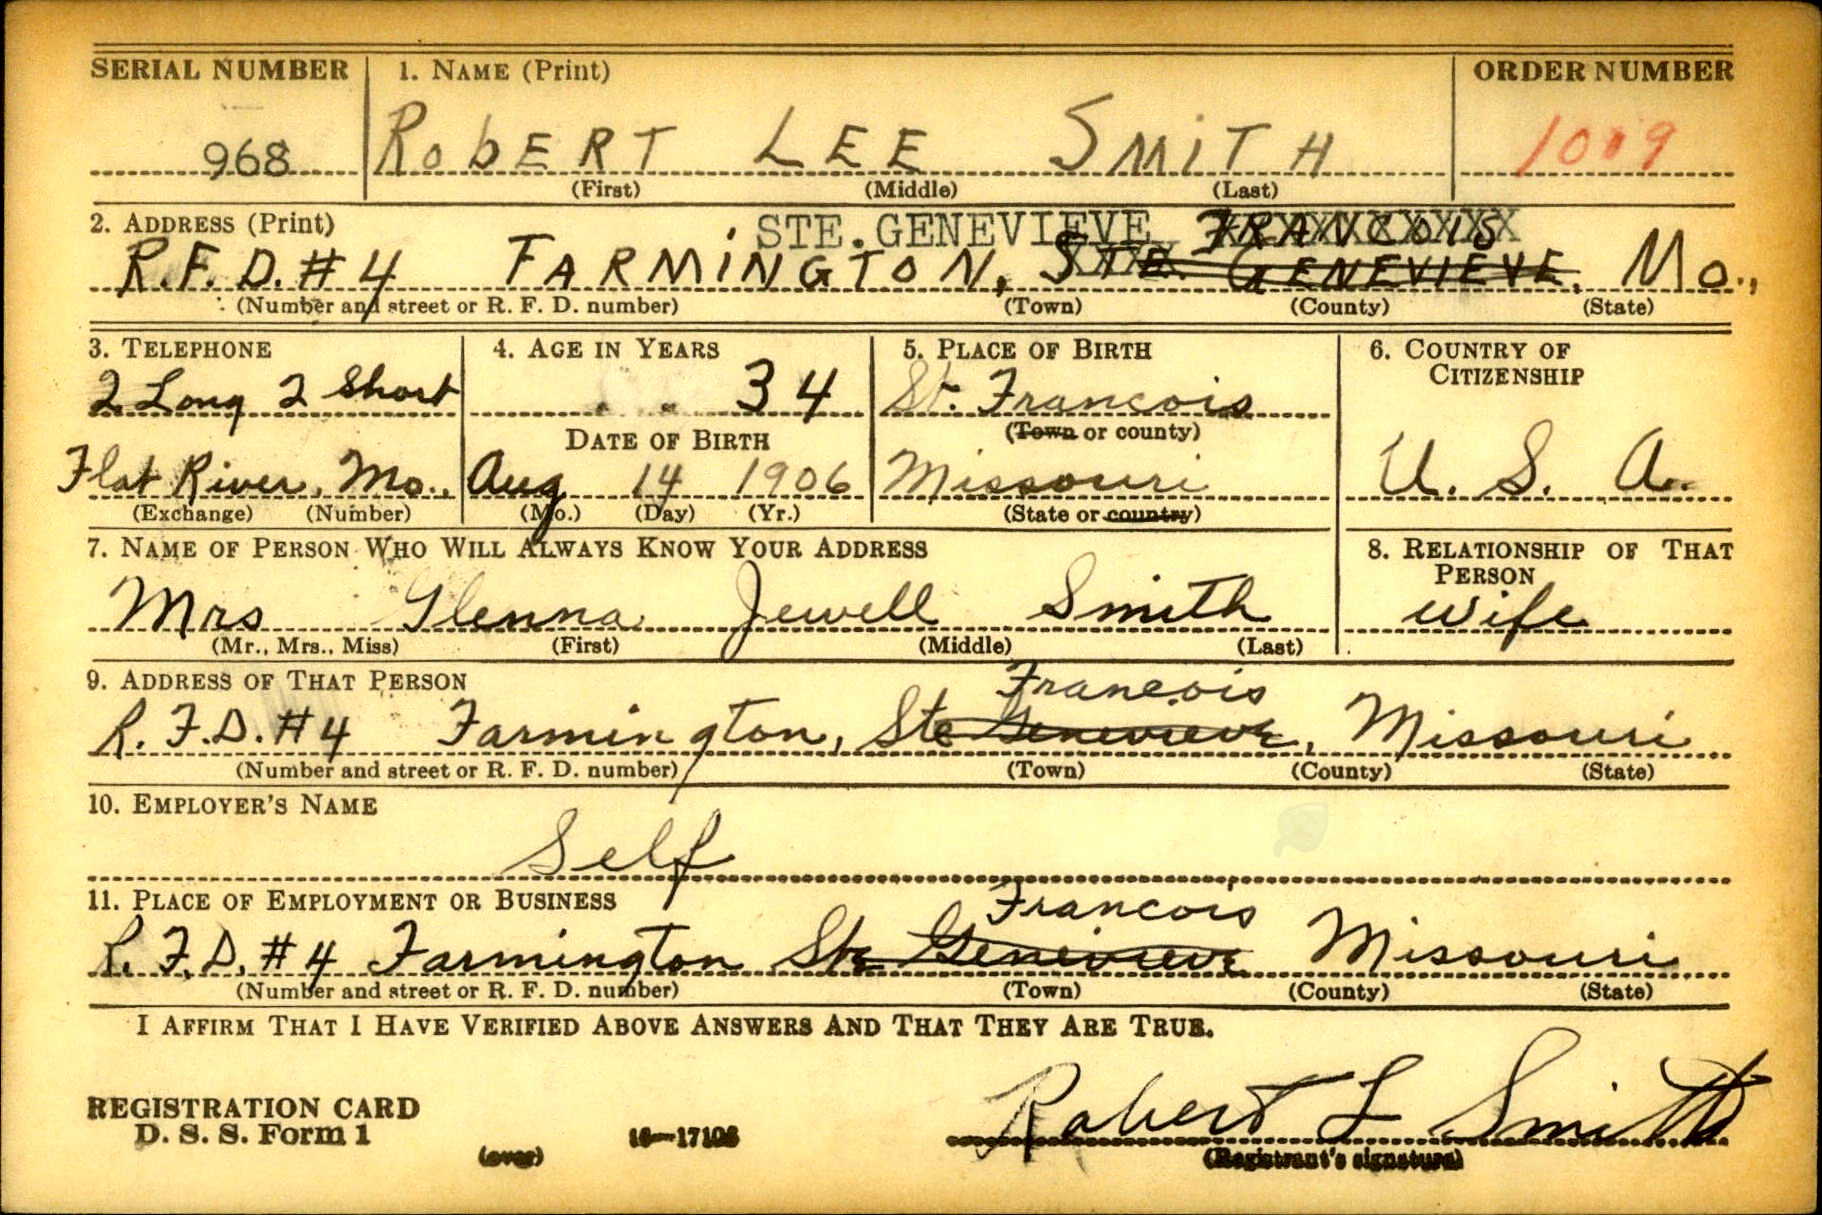 SERIAL NUMBER 1. NAME (Print) ORDER NUMBER
968 ROBERT LEE SMITH 1019
(First) (Middle) (Last)
2. ADDRESS (Print) STE. GENEVIEVE FRANCOIS
R.F.D. #4 FARMINGTON, STE. GENEVIEVE, MO.,
(Number and street or R. F. D. number) (Town) (County) (State)
3. TELEPHONE 4. AGE IN YEARS 5. PLACE OF BIRTH 6. COUNTRY OF CITIZENSHIP
2 Long 2 Short 34 St. Francois
DATE OF BIRTH (Town or county)
Flat River, Mo., Aug 14 1906 Missouri U. S. A.
(Exchange) (Number) (Mo.) (Day) (Yr.) (State or country)
7. NAME OF PERSON WHO WILL ALWAYS KNOW YOUR ADDRESS 8. RELATIONSHIP OF THAT PERSON
Mrs Glenna Jewell Smith wife
(Mr., Mrs., Miss) (First) (Middle) (Last)
9. ADDRESS OF THAT PERSON Francois
R.F.D. #4 Farmington, Ste Genevieve, Missouri
(Number and street or R. F. D. number) (Town) (County) (State)
10. EMPLOYER'S NAME
Self
11. PLACE OF EMPLOYMENT OR BUSINESS Francois
R.F.D. #4 Farmington Ste Genevieve Missouri
(Number and street or R. F. D. number) (Town) (County) (State)
I AFFIRM THAT I HAVE VERIFIED ABOVE ANSWERS AND THAT THEY ARE TRUE.
REGISTRATION CARD
D. S. S. Form 1 Robert L Smith
(over) 16—17105 (Registrant's signature)